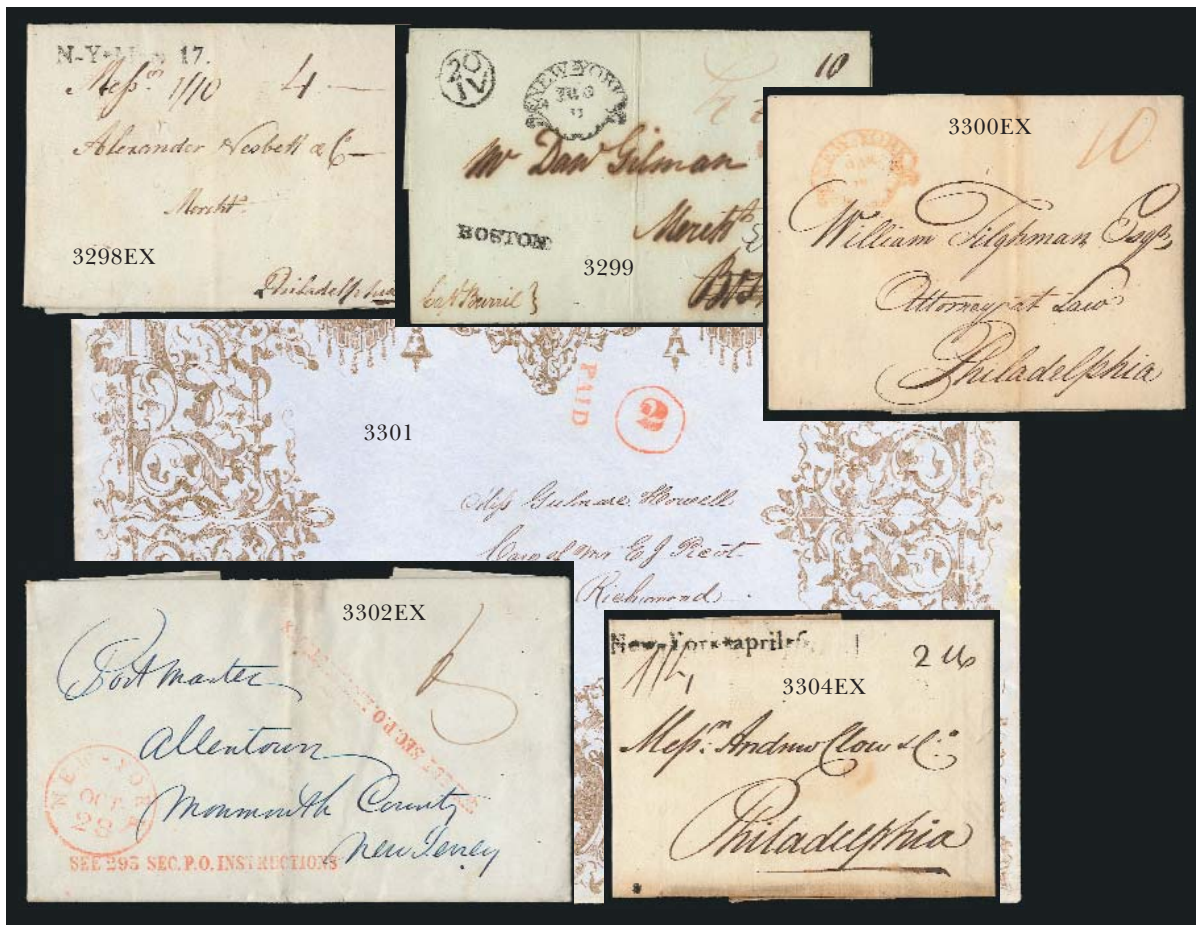 N-Y 17.
Mess.rs 1/10 4
Alexander Nesbett & Co
Mercht.s
3298EX
Philadelphia
20
IV
NEW-YORK
10
Mr Danl Gilman
Mercht
BOSTON
3299
Capt Burril }
3300EX
NEW-YORK
10
William Tilghman Esqr,
Attorney at Law
Philadelphia
PAID
2
3301
Miss Gulnare Howell
Care of Mr E J Picot
Richmond
3302EX
5
Post Master
SEC.P.O.
Allentown
NEW-YOR
OCT
28
Monmouth County
New Jersey
SEE 293 SEC.P.O.INSTRUCTIONS
New-York april
2 16
3304EX
Mess.rs Andrew Clow & Co.
Philadelphia